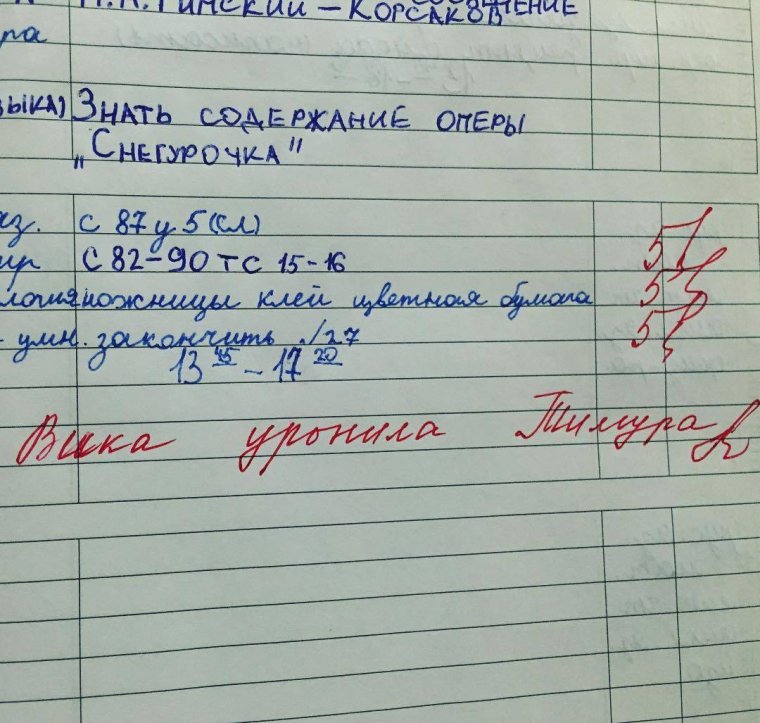 Н.А. Римский – Корсаков
ра
Знать содержание оперы
„Снегурочка"
аз. с 87 у 5 (сл)
ир с 82-90 т с 15-16
логия ножницы клей цветная бумага
умн. закончить ./27
13 45 – 17 20
5
5
5
Вика уронила Тимура